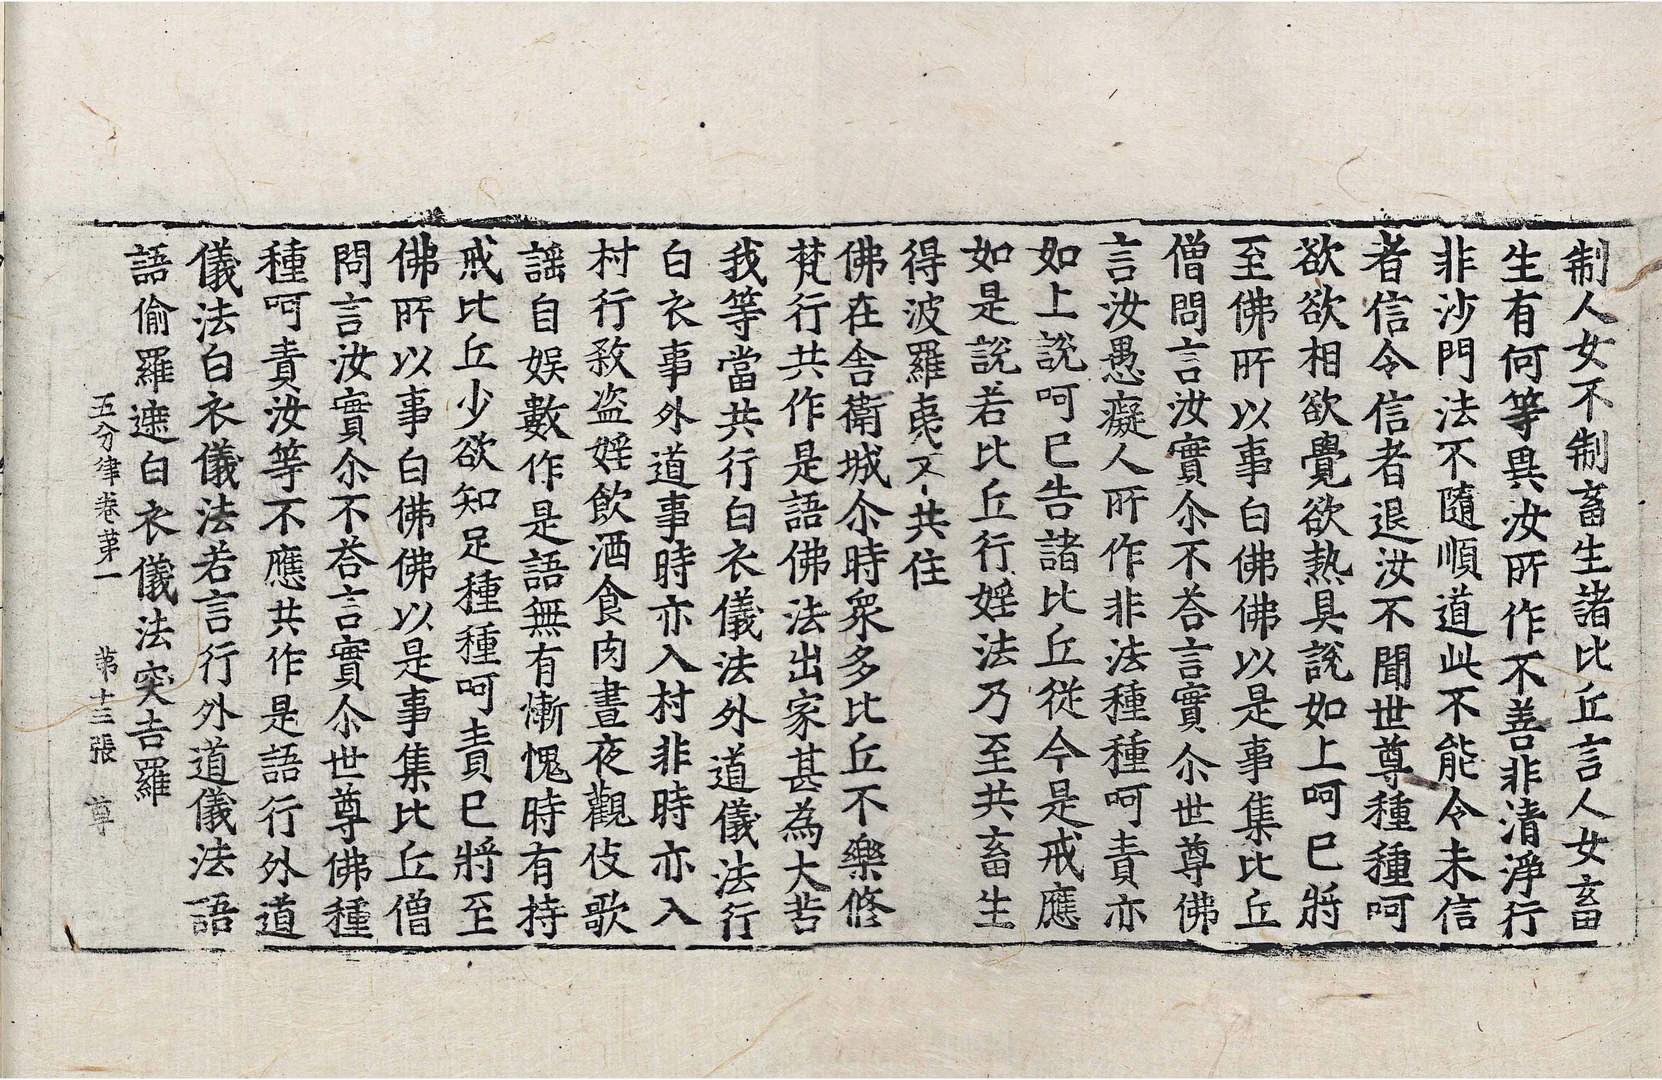 制人女不制畜生諸比丘言人女畜
生有何等異汝所作不善非清淨行
非沙門法不隨順道此不能令未信
者信令信者退汝不聞世尊種種呵
欲欲相欲覺欲熱具說如上呵已將
至佛所以事白佛佛以是事集比丘
僧問言汝實尒不荅言實尒世尊佛
言汝愚癡人所作非法種種呵責亦
如上說呵已告諸比丘從今是戒應
如是說若比丘行婬法乃至共畜生
得波羅夷不共住
佛在舍衛城尒時衆多比丘不樂修
梵行共作是語佛法出家甚為大苦
我等當共行白衣儀法外道儀法行
白衣事外道事時亦入村非時亦入
村行殺盜婬飲酒食肉晝夜觀伎歌
謡自娱數作是語無有慚愧時有持
戒比丘少欲知足種種呵責已將至
佛所以事白佛佛以是事集比丘僧
問言汝實尒不荅言實尒世尊佛種
種呵責汝等不應共作是語行外道
儀法白衣儀法若言行外道儀法語
語偷羅遮白衣儀法突吉羅
五分律卷第一 第十三張 尊